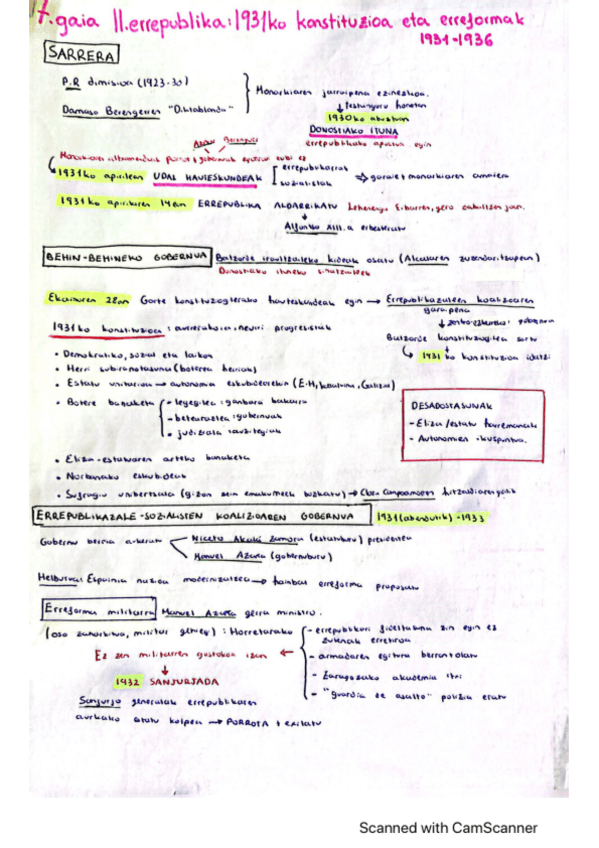 17. gaia II. errepublika: 1931ko konstituzioa eta erreformak
1931-1936
SARRERA
P.R dimisioa (1923-30)
Damaso Berengerren "Diktablanda"
Monarkiaren jarraipena ezinezkoa.
↓ testuinguru honetan
1930ko abuztuan
DONOSTIAKO ITUNA
errepublikako apustua egin
Aznar Berenguer
1931ko apirilean UDAL HAUTESKUNDEAK
errepublikarrak
sozialistak
1931ko apirilaren 14an ERREPUBLIKA ALDARRIKATU Lehenengo Eibarren, gero
Alfontso XIII.a erbesteratu
BEHIN-BEHINEKO GOBERNUA Batzorde iraultzaileko kideak osatu (Alcalaren zuzendaritzapean)
Donostiako ituneko sinatzaileek
Ekainaren 28an Gorte konstituziogileetarako hauteskundeak egin → Errepublikazaleen koalizioaren
garaipena
Batzorde konstituziogilea sortu
1931ko konstituzioa idatzi
1931ko konstituzioa: aurrerakoia, neurri progresistak
• Demokratiko, sozial eta laikoa
• Herri subiranotasuna (boterea herriak)
• Estatu unitarioa → autonomia eskubidearekin (E-H, Katalunia, Galizia)
• Botere banaketa
- legegilea: ganbara bakarra
- betearazlea: gobernuak
- judiziala: auzitegiak
DESADOSTASUNAK
- Eliza/estatu harremanak
- Autonomien ikuspuntua.
• Eliza-estatuaren arteko banaketa
• Norbanako eskubideak
• Sufragio unibertsala (gizon zein emakumeek bozkatu) → Clara Campoamorren hitzaldiaren
ERREPUBLIKAZALE-SOZIALISTEN KOALIZIOAREN GOBERNUA 1931 (abendutik)-1933
Gobernu berria aukeratu
Niceto Alcalá Zamora (estatuburu) presidentea
Manuel Azaña (gobernuburu)
Helburua: Espainia nazioa modernizatzea → hainbat erreforma proposatu
Erreforma militarra Manuel Azaña gerra ministro.
(oso zaharkitua, militar gehiegi): Horretarako
- errepublikari fideltasuna zin egin ez
zutenak erretiroa.
- armadaren egitura berrantolatu
- Zaragozako akademia itxi
- "guardia de asalto" polizia eratu
Ez zen militarren gustokoa izan
↓
1932 SANJURJADA
Sanjurjo generalak errepublikaren
aurkako estatu kolpea → PORROTA + exiliatu
Scanned with CamScanner